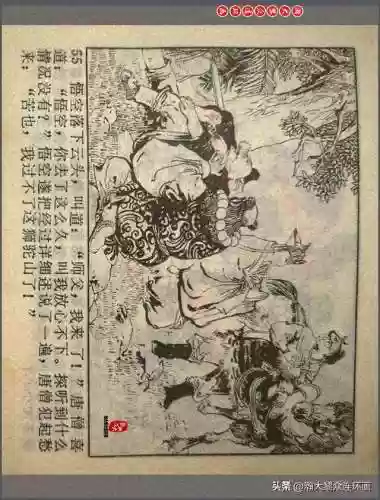 55 悟空落下云头，叫道：“师父，我来了！”唐僧喜
道：“悟空，你去了这么久，叫我放心不下。探听到什么
情况没有？”悟空遂把经过详细述说了一遍，唐僧犯起愁
来：“苦也，我过不了这狮驼山了！”
头条